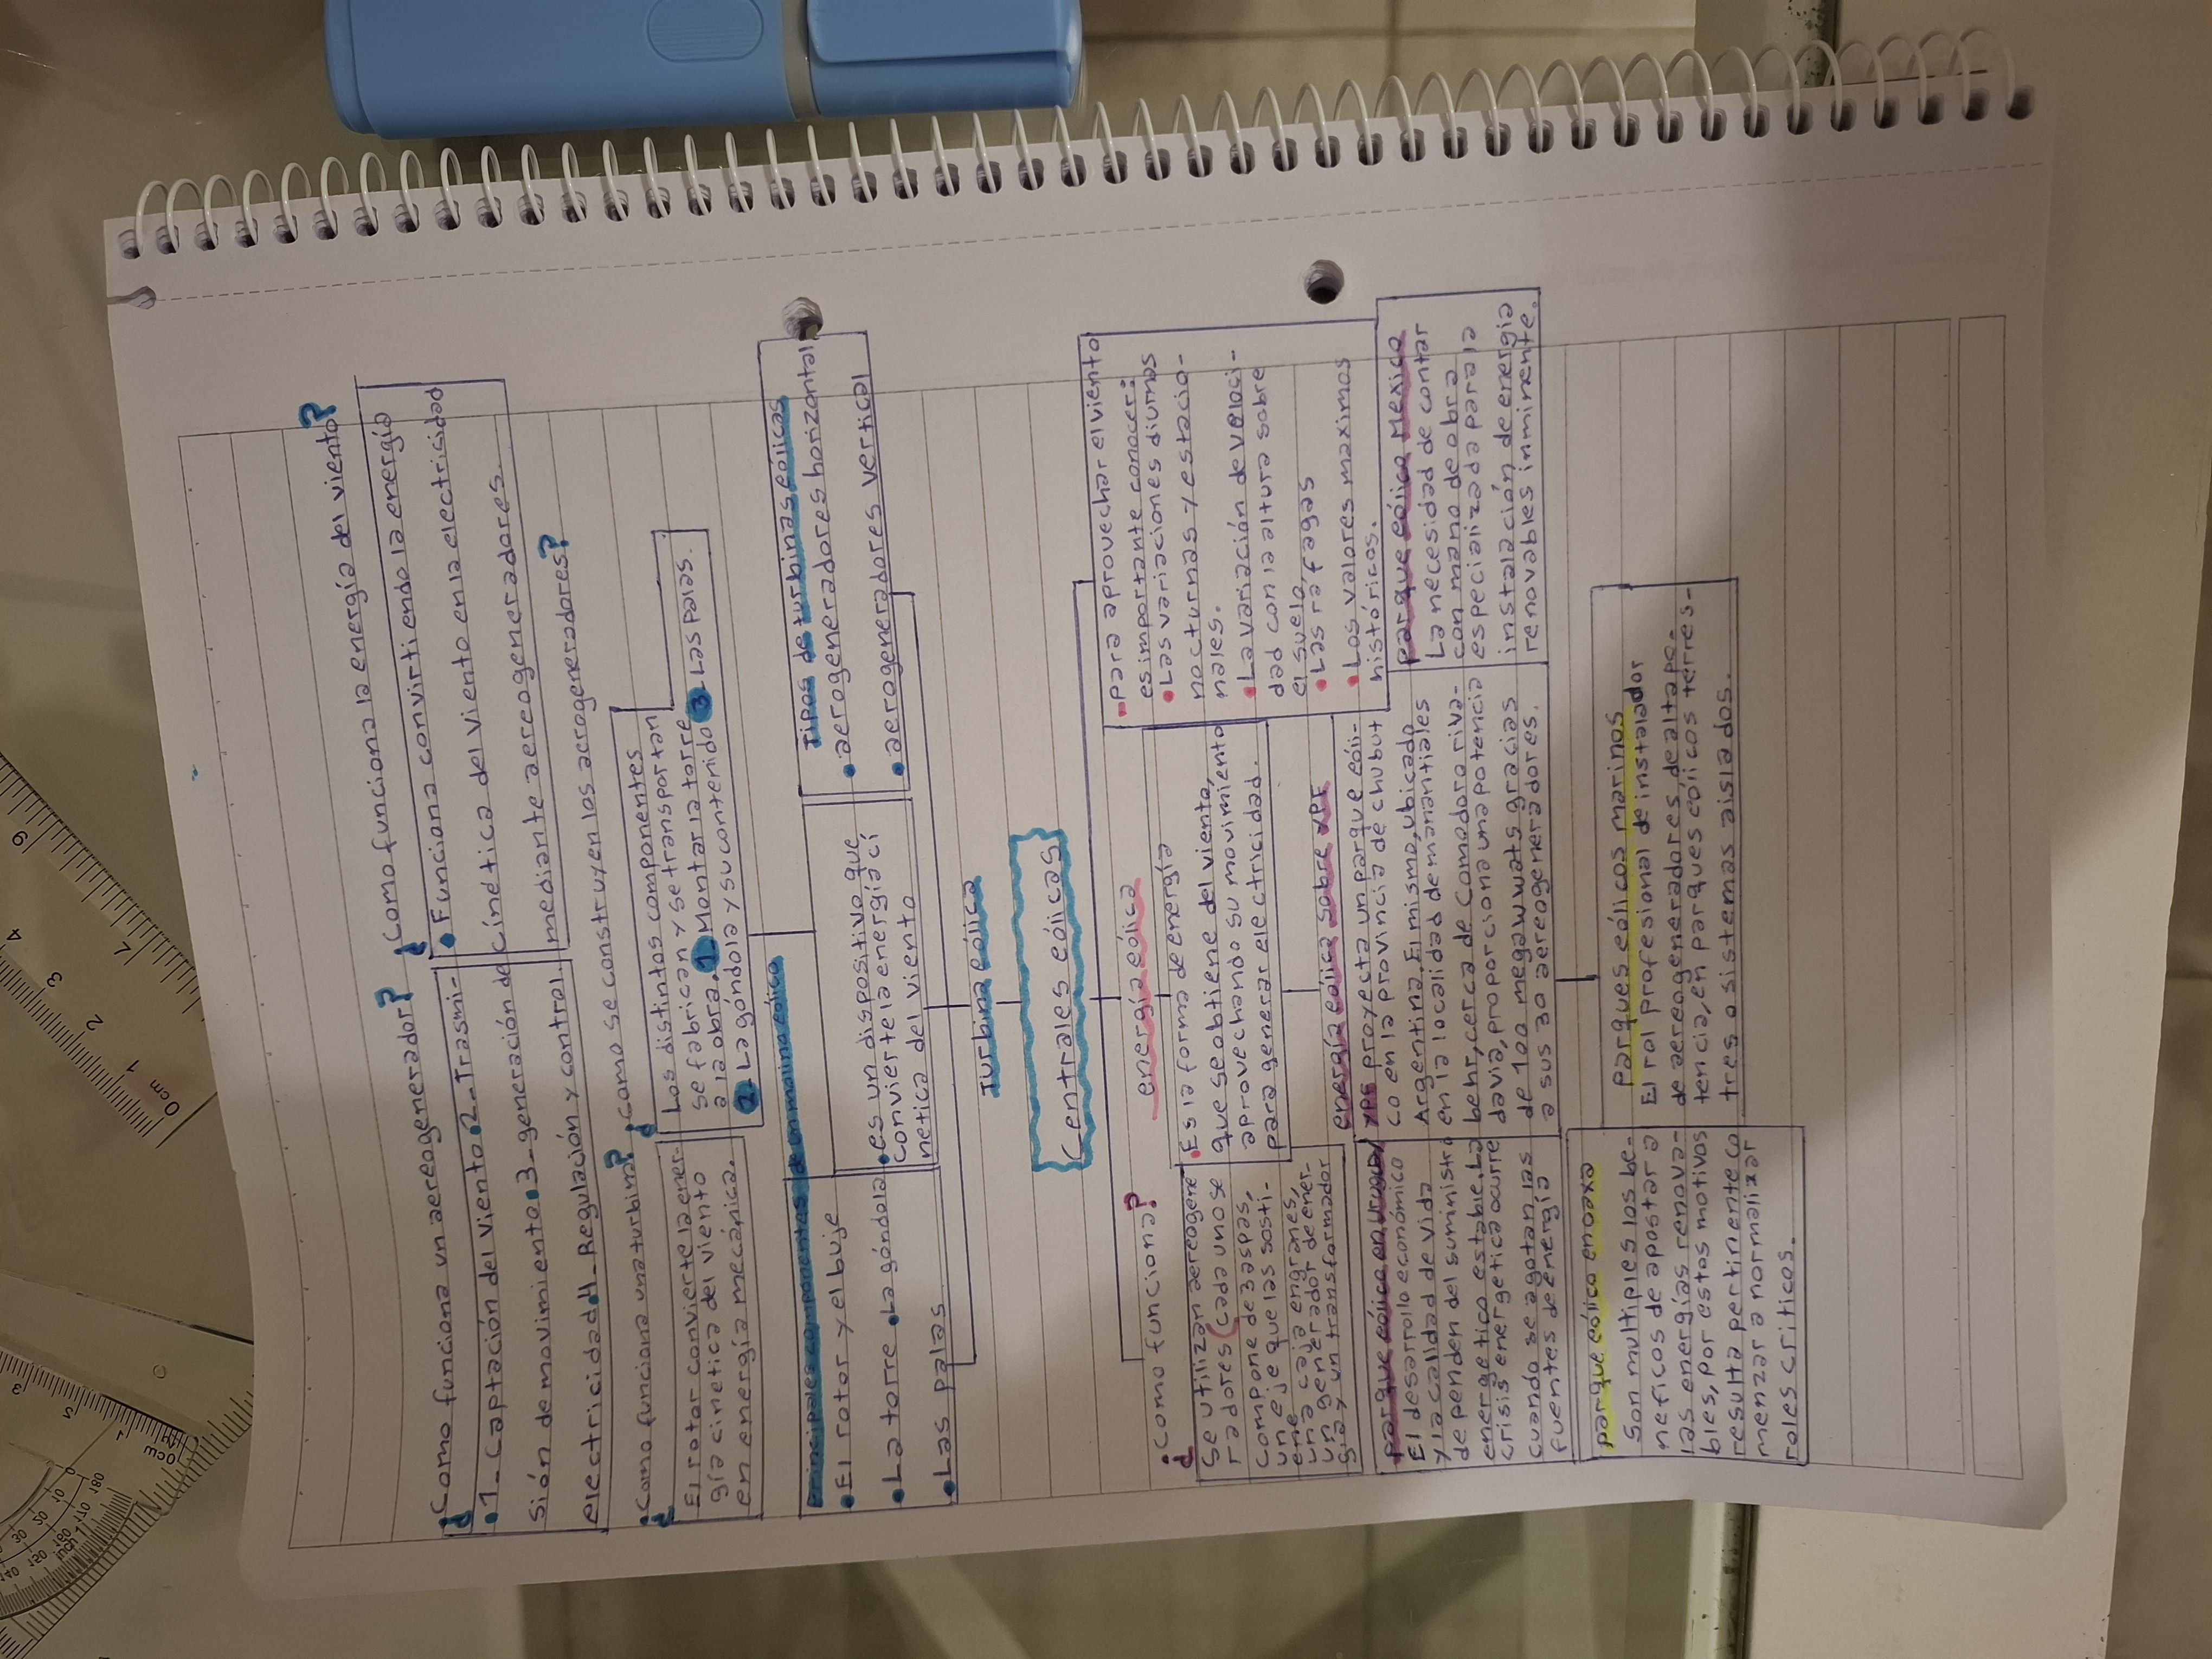 ¿Como funciona la energía del viento?
• Funciona convirtiendo la energía
cinética del viento en la electricidad
mediante aereogeneradores.
¿Como funciona un aereogenerador?
•1_Captación del viento •2_Trasmi-
sión de movimiento •3_generación de
electricidad •4_Regulación y control.
¿como se construyen los aerogeneradores?
Los distintos componentes
se fabrican y se transportan
a la obra. 1_Montar la torre
2_La góndola y su contenido 3_Las palas.
¿Como funciona una turbina?
El rotor convierte la ener-
gía cinetica del viento
en energía mecánica.
Tipos de turbinas eolicas
• aerogeneradores horizontal
• aerogeneradores vertical
principales componentes de un maina eólico
• El rotor y el buje
• La torre • La góndola
• Las palas
• es un dispositivo que
convierte la energía cí
netica del viento
Turbina eólica
Centrales eólicas
energía eólica
• Es la forma de energía
que se obtiene del viento,
aprovechando su movimiento
para generar electricidad.
-Para aprovechar el viento
es importante conocer:
• Las variaciones diurnas
nocturnas y estacio-
nales.
• La variación de veloci-
dad con la altura sobre
el suelo
• Las ráfagas
• Los valores maximos
históricos.
¿como funciona?
Se utilizan aereogene
radores (cada uno se
compone de 3 aspas,
un eje que las sosti-
ene
una caja engranes,
un generador de ener-
gia y un transformador
energía eólica sobre YPF
YPF proyecta un parque eóli-
co en la provincia de chubut
Argentina. El mismo, ubicado
en la localidad de manantiales
behr, cerca de Comodoro riva-
davia, proporciona una potencia
de 100 megawwats gracias
a sus 30 aereogeneradores.
parque eólico Mexico
La necesidad de contar
con mano de obra
especializada para la
instalación de energia
renovables inminente.
parque eólica en uruguay
El desarrollo económico
y la calidad de vida
dependen del suministro
energetico estable. La
crisis energetica ocurre
cuando se agotan las
fuentes de energía
parques eólicos marinos
El rol profesional de instalador
de aereogeneradores, de alta po-
tencia, en parques eólicos terres-
tres o sistemas aislados.
parque eólico en oaxa
Son multiples los be-
neficos de apostar a
las energías renova-
bles, por estos motivos
resulta pertinente co
menzar a normalizar
roles criticos.
0cm 1 2 3 4